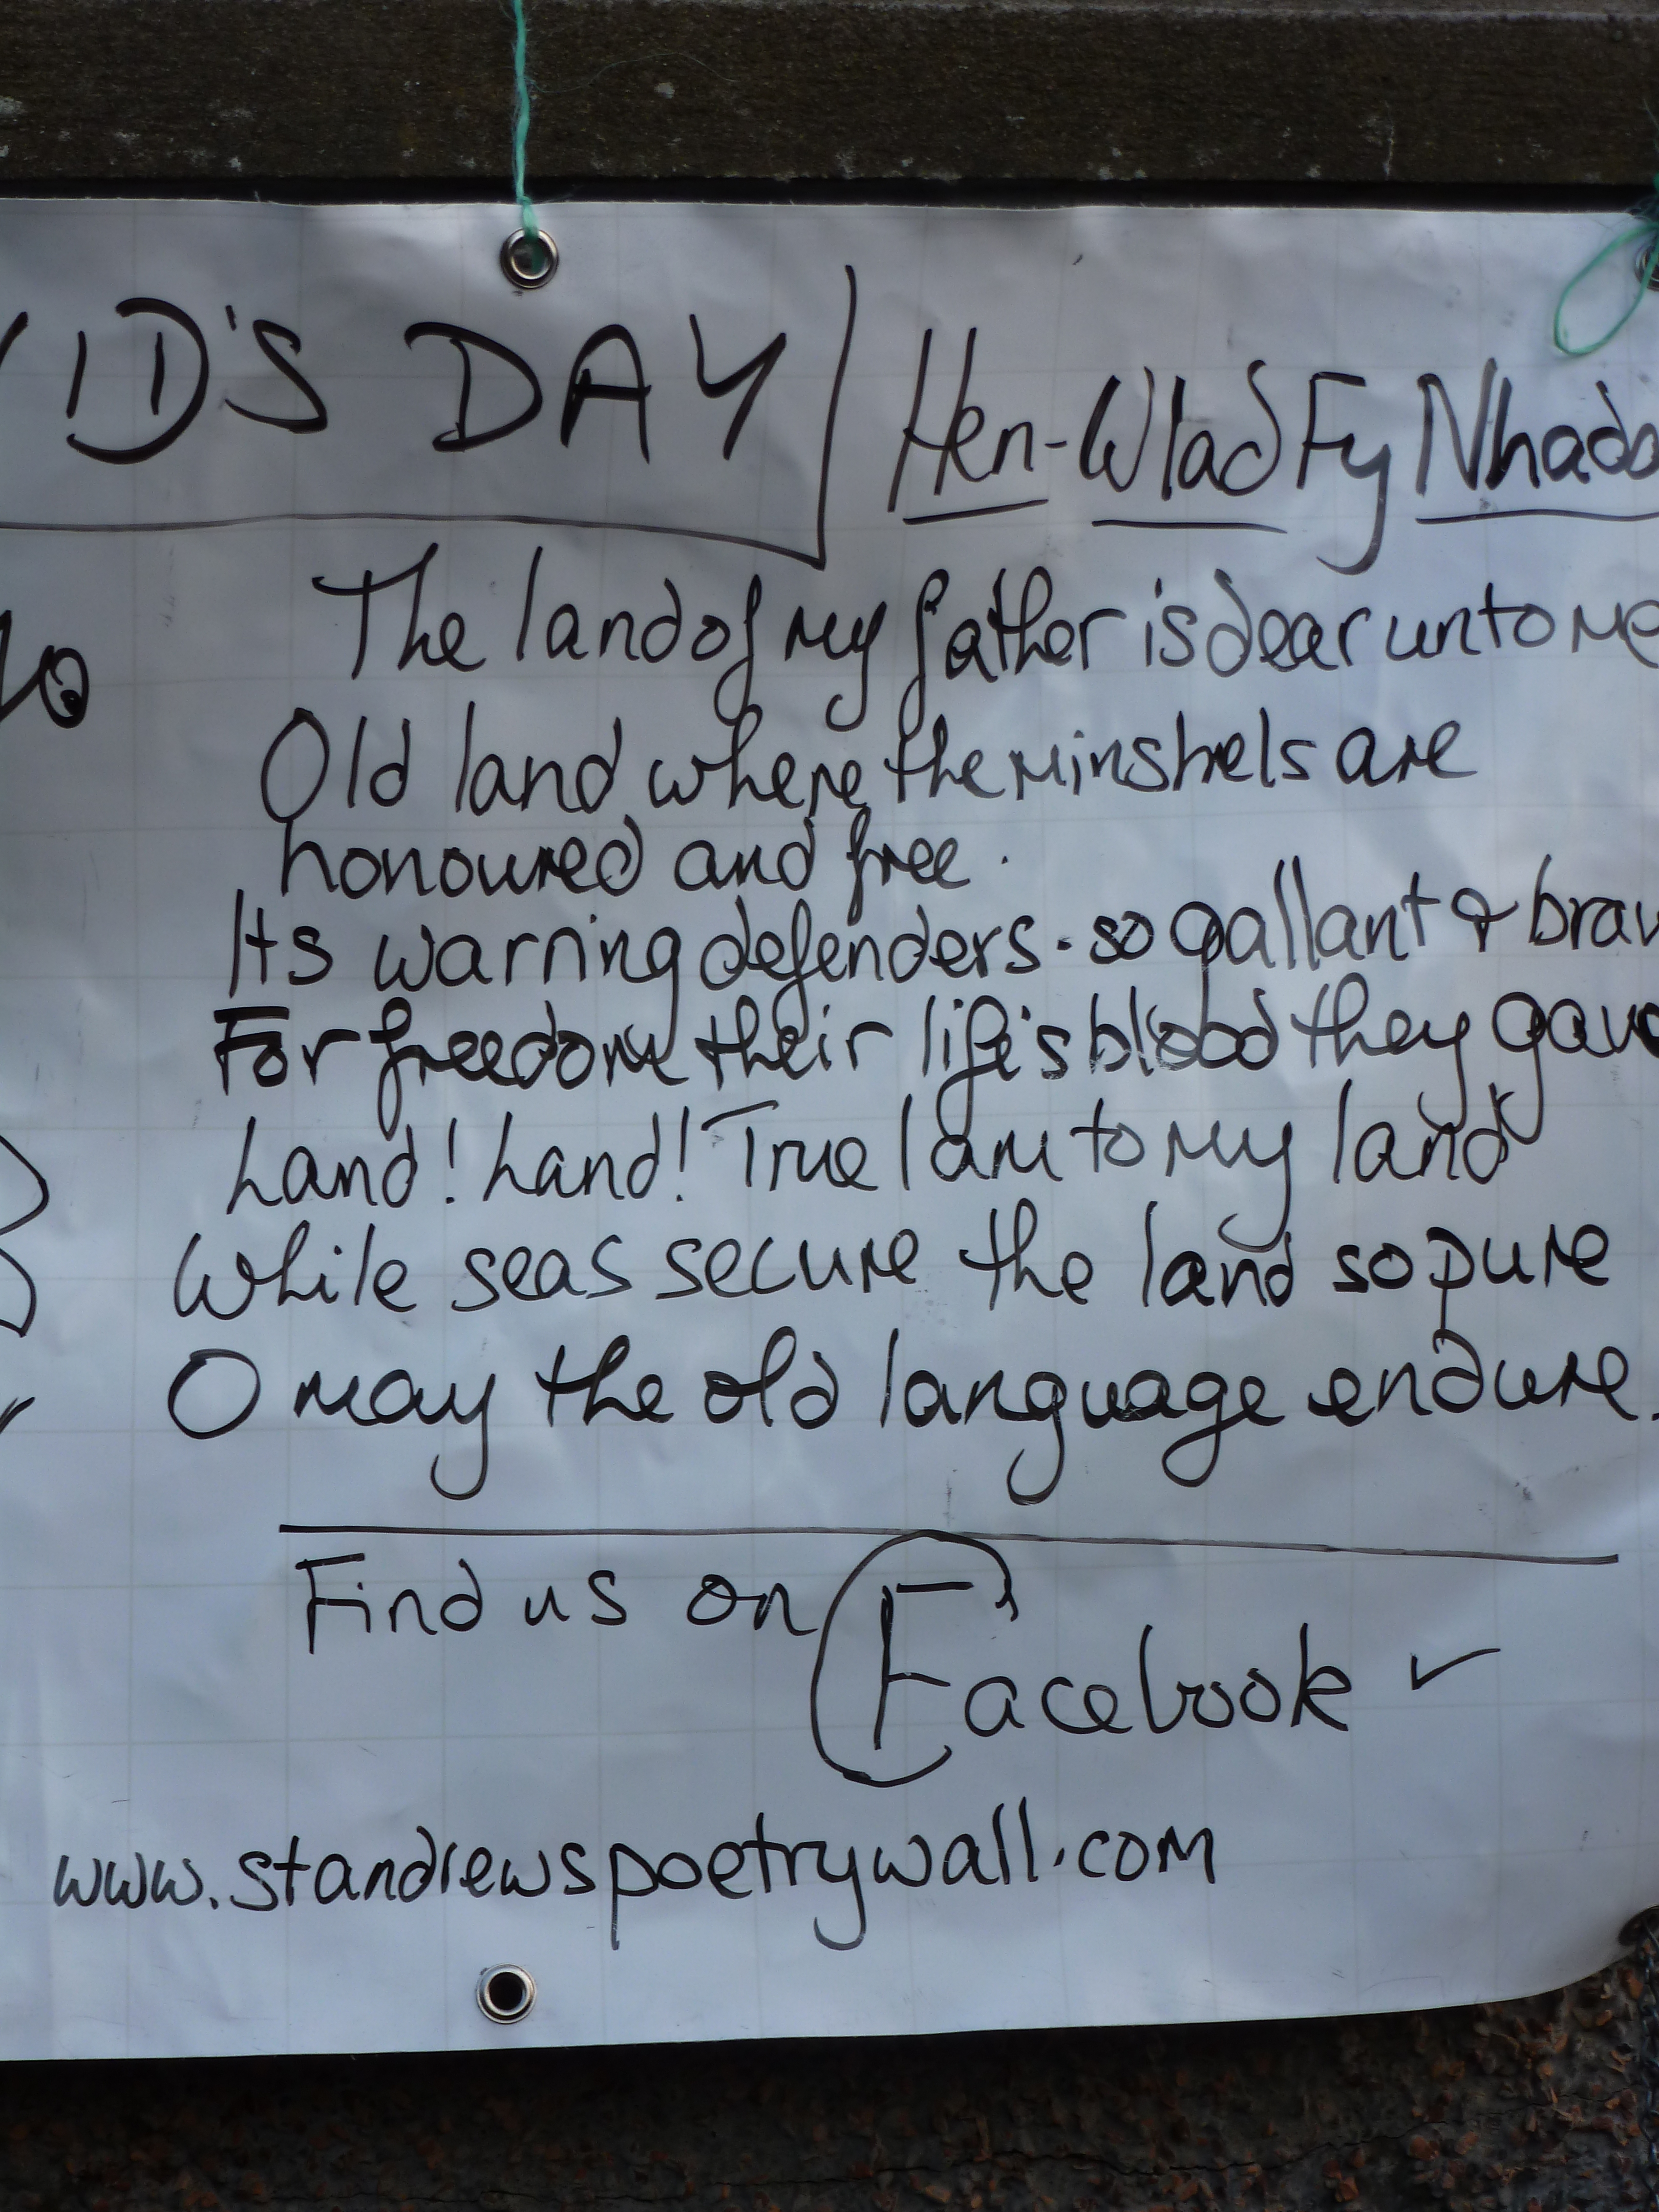 VID'S DAY
Hen-Wlad Fy Nhada
The land of my father is dear unto me
Old land where the minstrels are
honoured and free.
Its warring defenders. so gallant & brav
For freedom their life's blood they gave
Land! Land! True I am to my land
While seas secure the land so pure
O may the old language endure.
Find us on
Facebook ✓
www.standrewspoetrywall.com